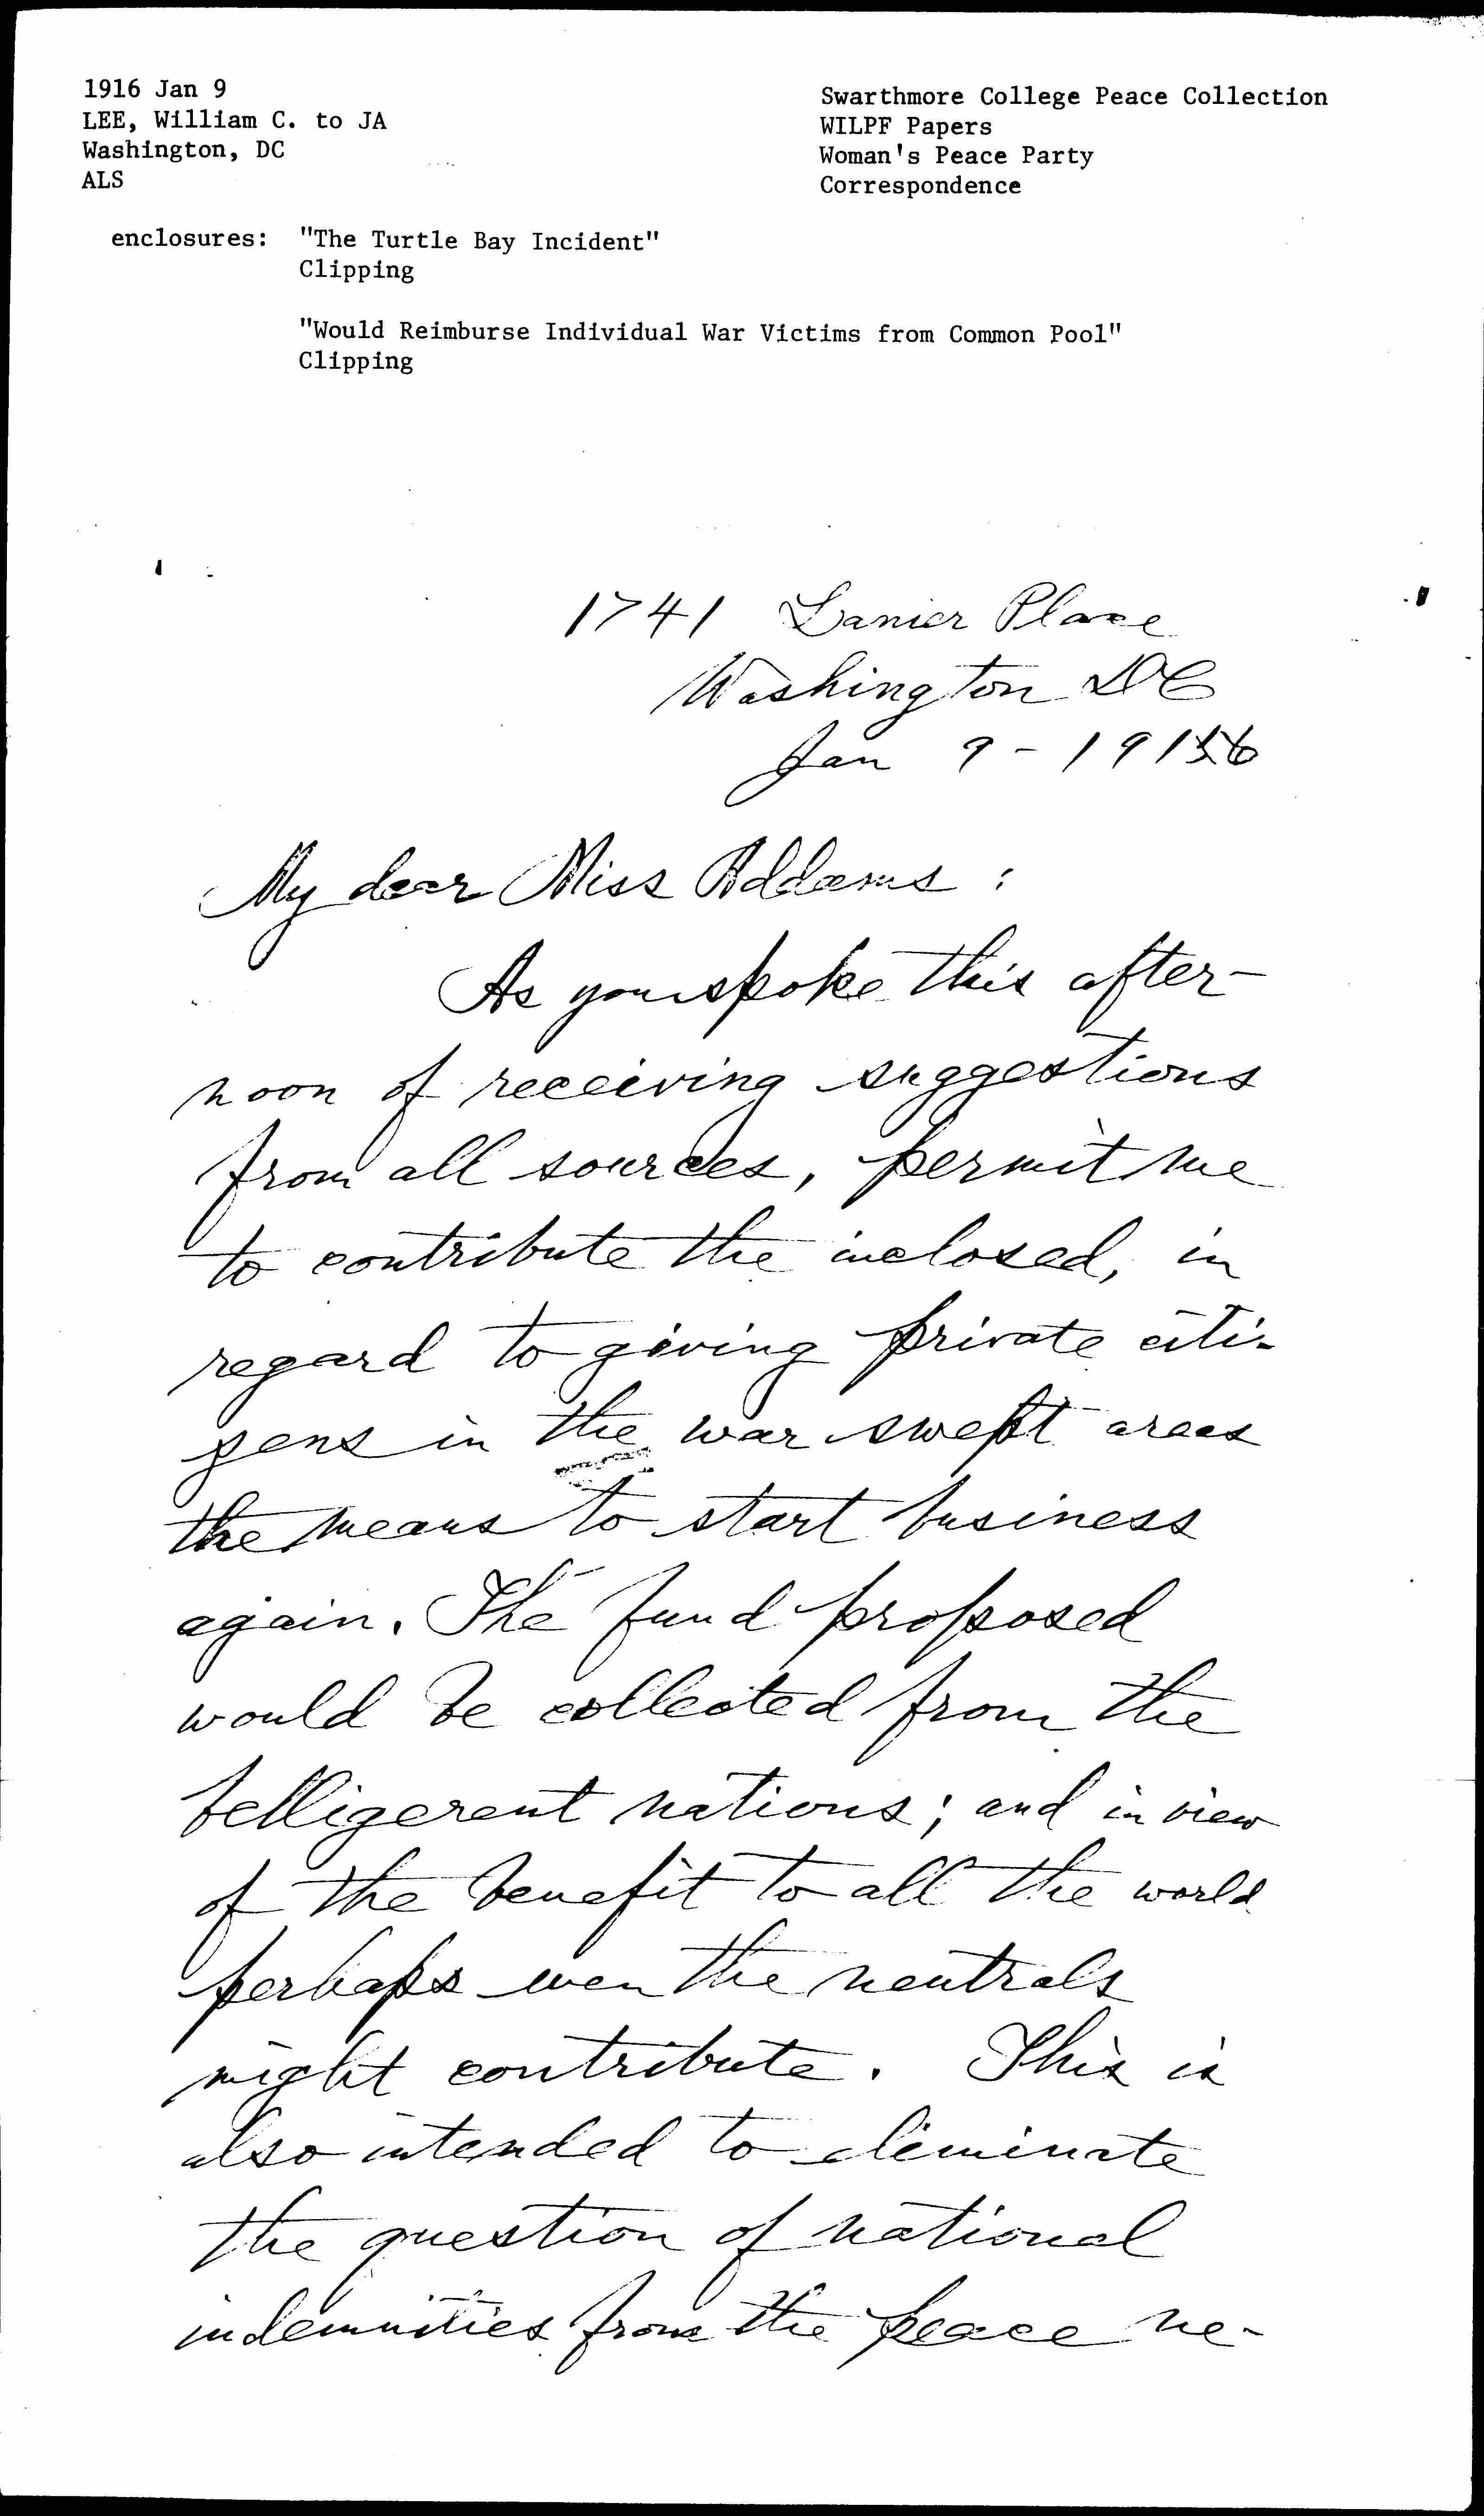 1916 Jan 9
LEE, William C. to JA
Washington, DC
ALS
Swarthmore College Peace Collection
WILPF Papers
Woman's Peace Party
Correspondence
enclosures: "The Turtle Bay Incident"
Clipping
"Would Reimburse Individual War Victims from Common Pool"
Clipping
1741 Lanier Place
Washington DC
Jan 9 - 1916
My dear Miss Addams :
As you spoke this after-
noon of receiving suggestions
from all sources, permit me
to contribute the inclosed, in
regard to giving private citi-
zens in the war swept areas
the means to start business
again. The fund proposed
would be collected from the
belligerent nations; and in view
of the benefit to all the world
perhaps even the neutrals
might contribute. This is
also intended to eliminate
the question of national
indemnities from the peace ne-